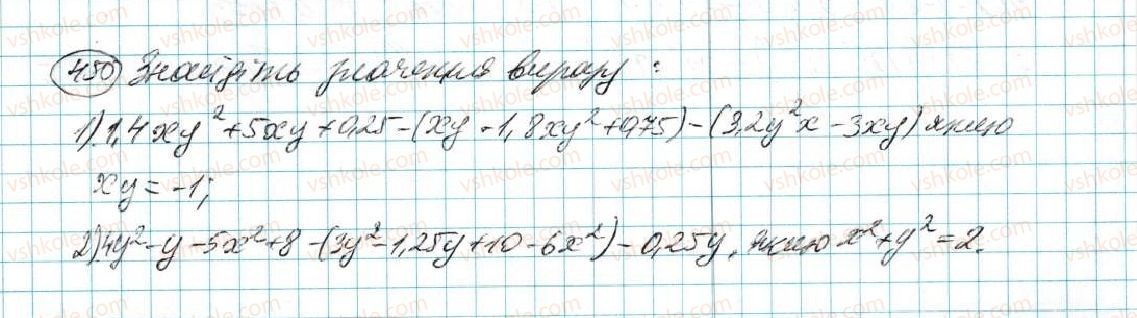 450 Знайдіть значення виразу:
1) 1,4xy²+5xy+0,25-(xy-1,8xy²+0,75)-(3,2y²x-3xy) якщо
xy=-1;
2) 4y²-y-5x²+8-(3y²-1,25y+10-6x²)-0,25y, якщо x²+y²=2.